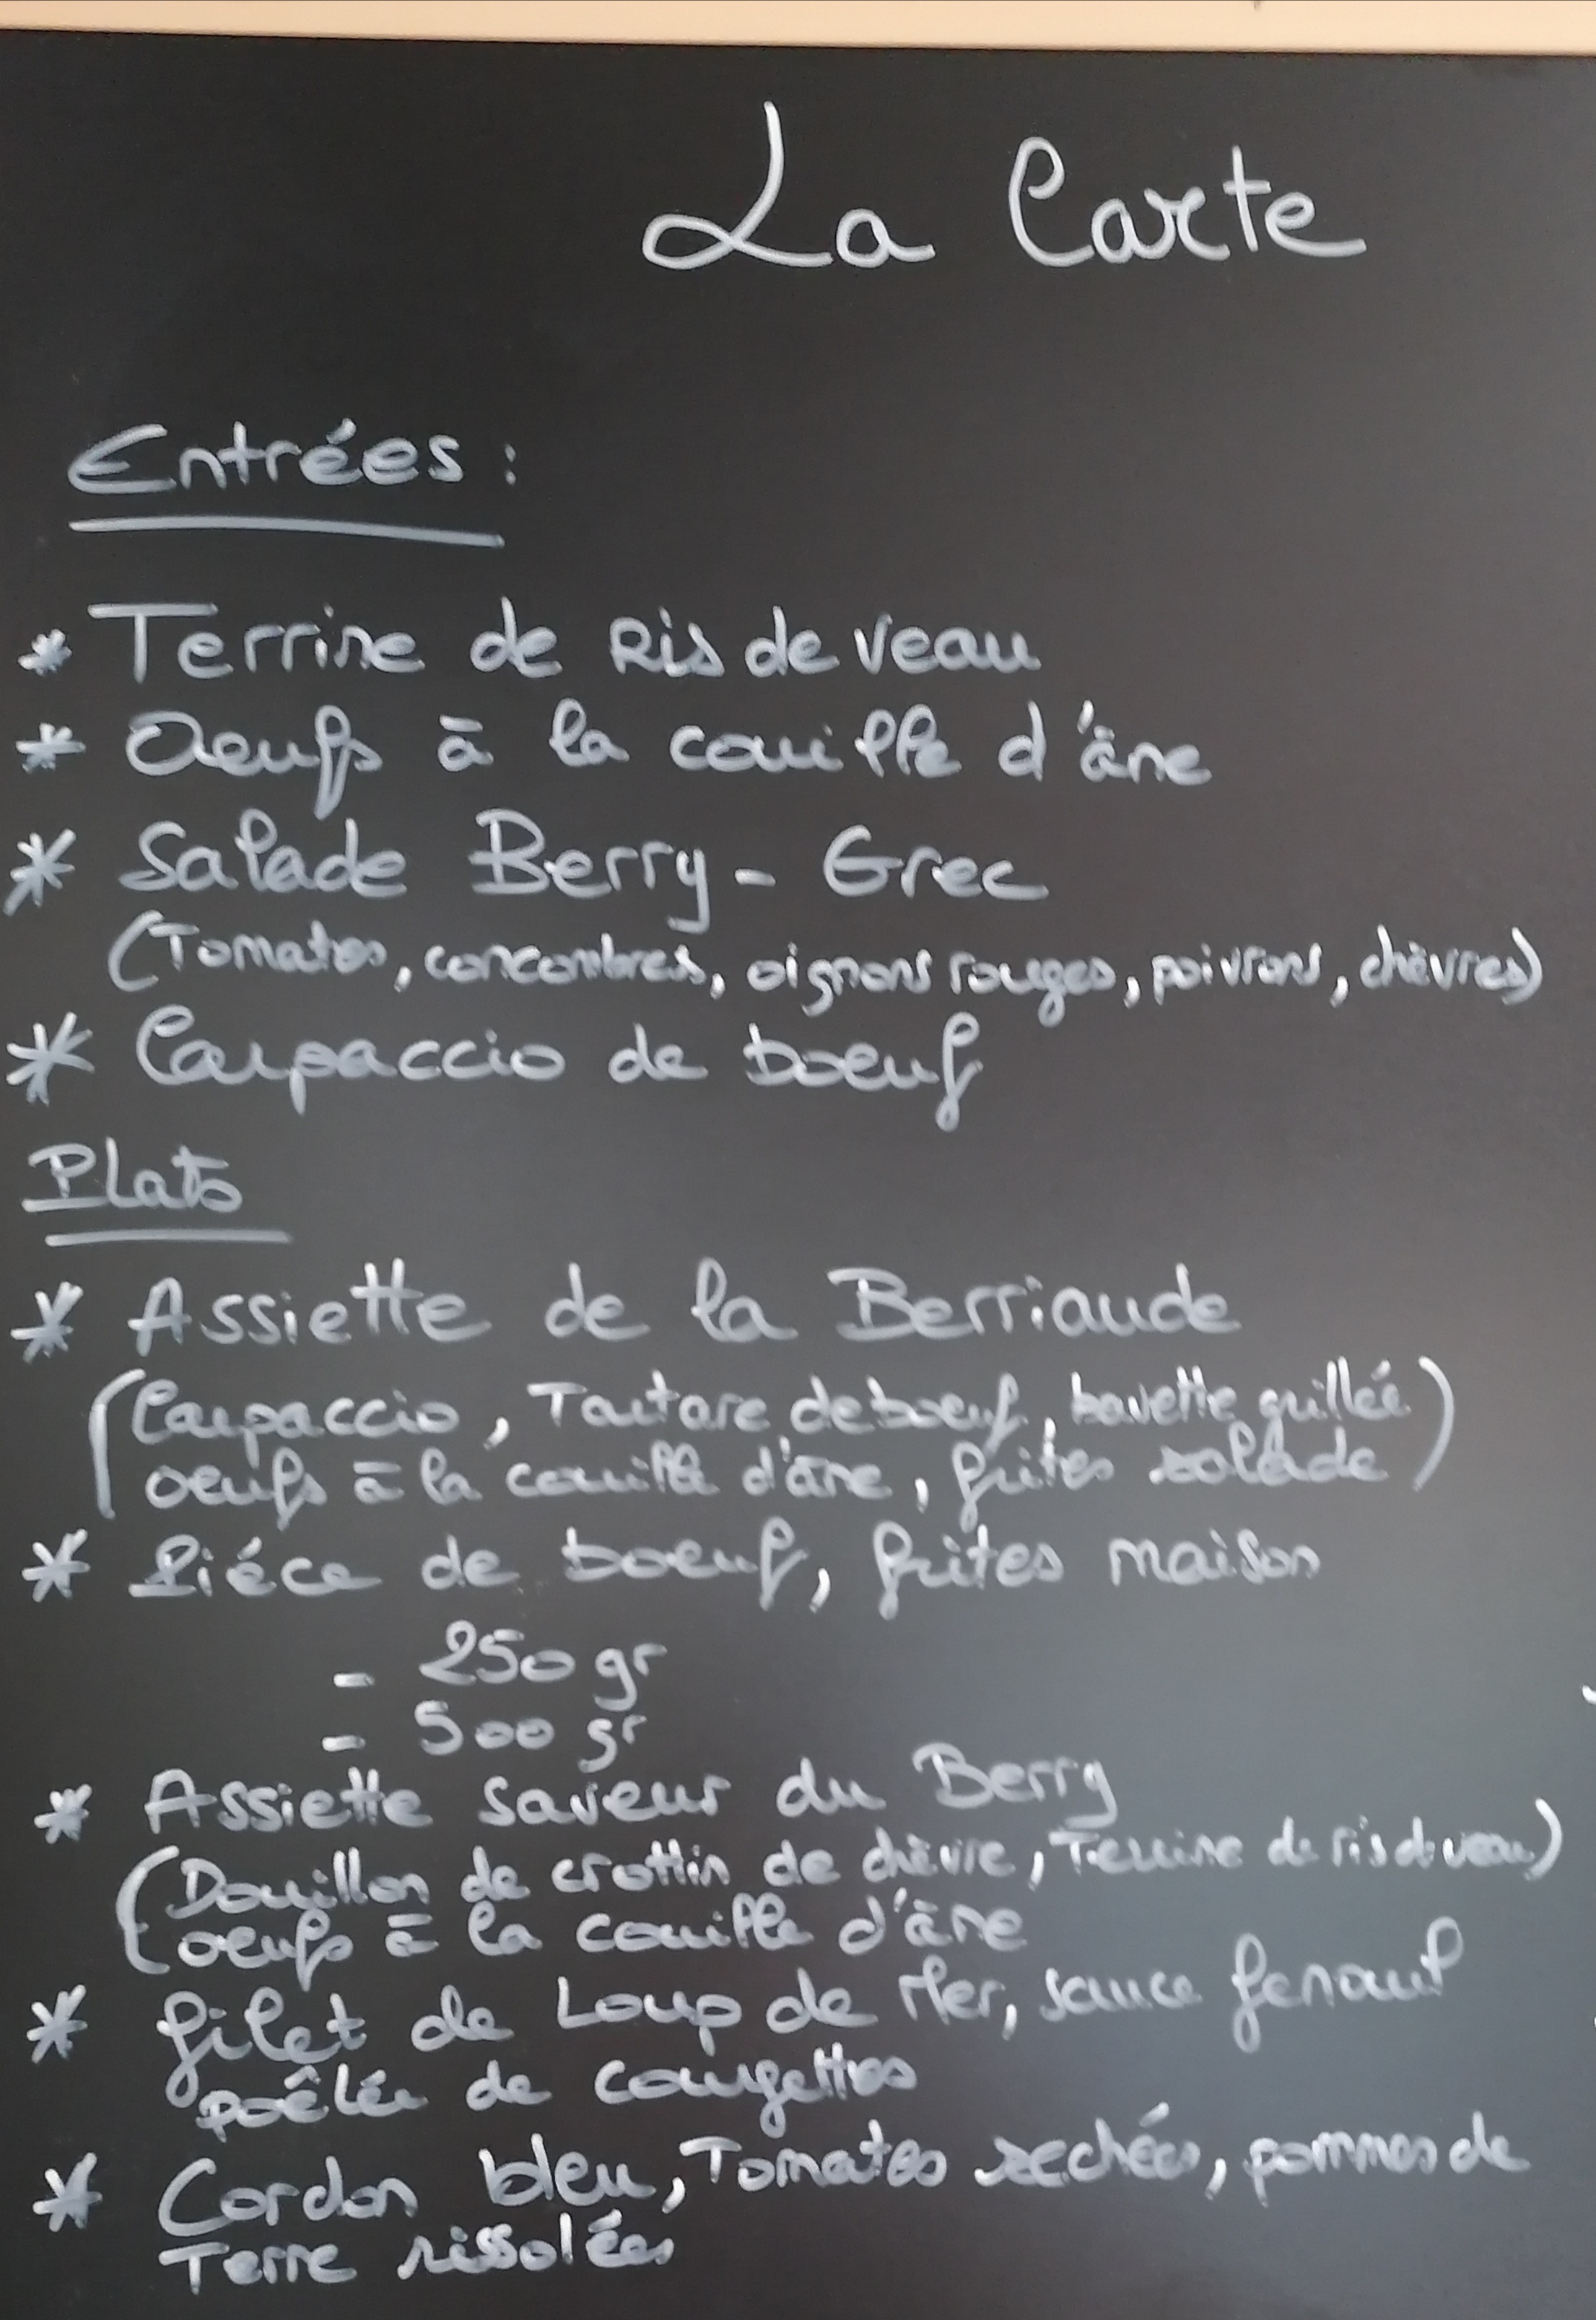 La Carte
Entrées :
* Terrine de Ris de veau
* Oeufs à la couille d'âne
* Salade Berry - Grec
(Tomates, concombres, oignons rouges, poivrons, chèvres)
* Carpaccio de boeuf
Plats
* Assiette de la Berriaude
(Carpaccio, Tartare de boeuf, bavette grillée
oeufs à la couille d'âne, frites salade)
* Piéce de boeuf, frites maison
- 250 gr
- 500 gr
* Assiette saveur du Berry
(Douillon de crottin de chèvre, Terrine de ris de veau)
oeufs à la couille d'âne
* filet de Loup de Mer, sauce fenouil
poêlée de courgettes
* Cordon bleu, Tomates sechées, pommes de
Terre rissolées